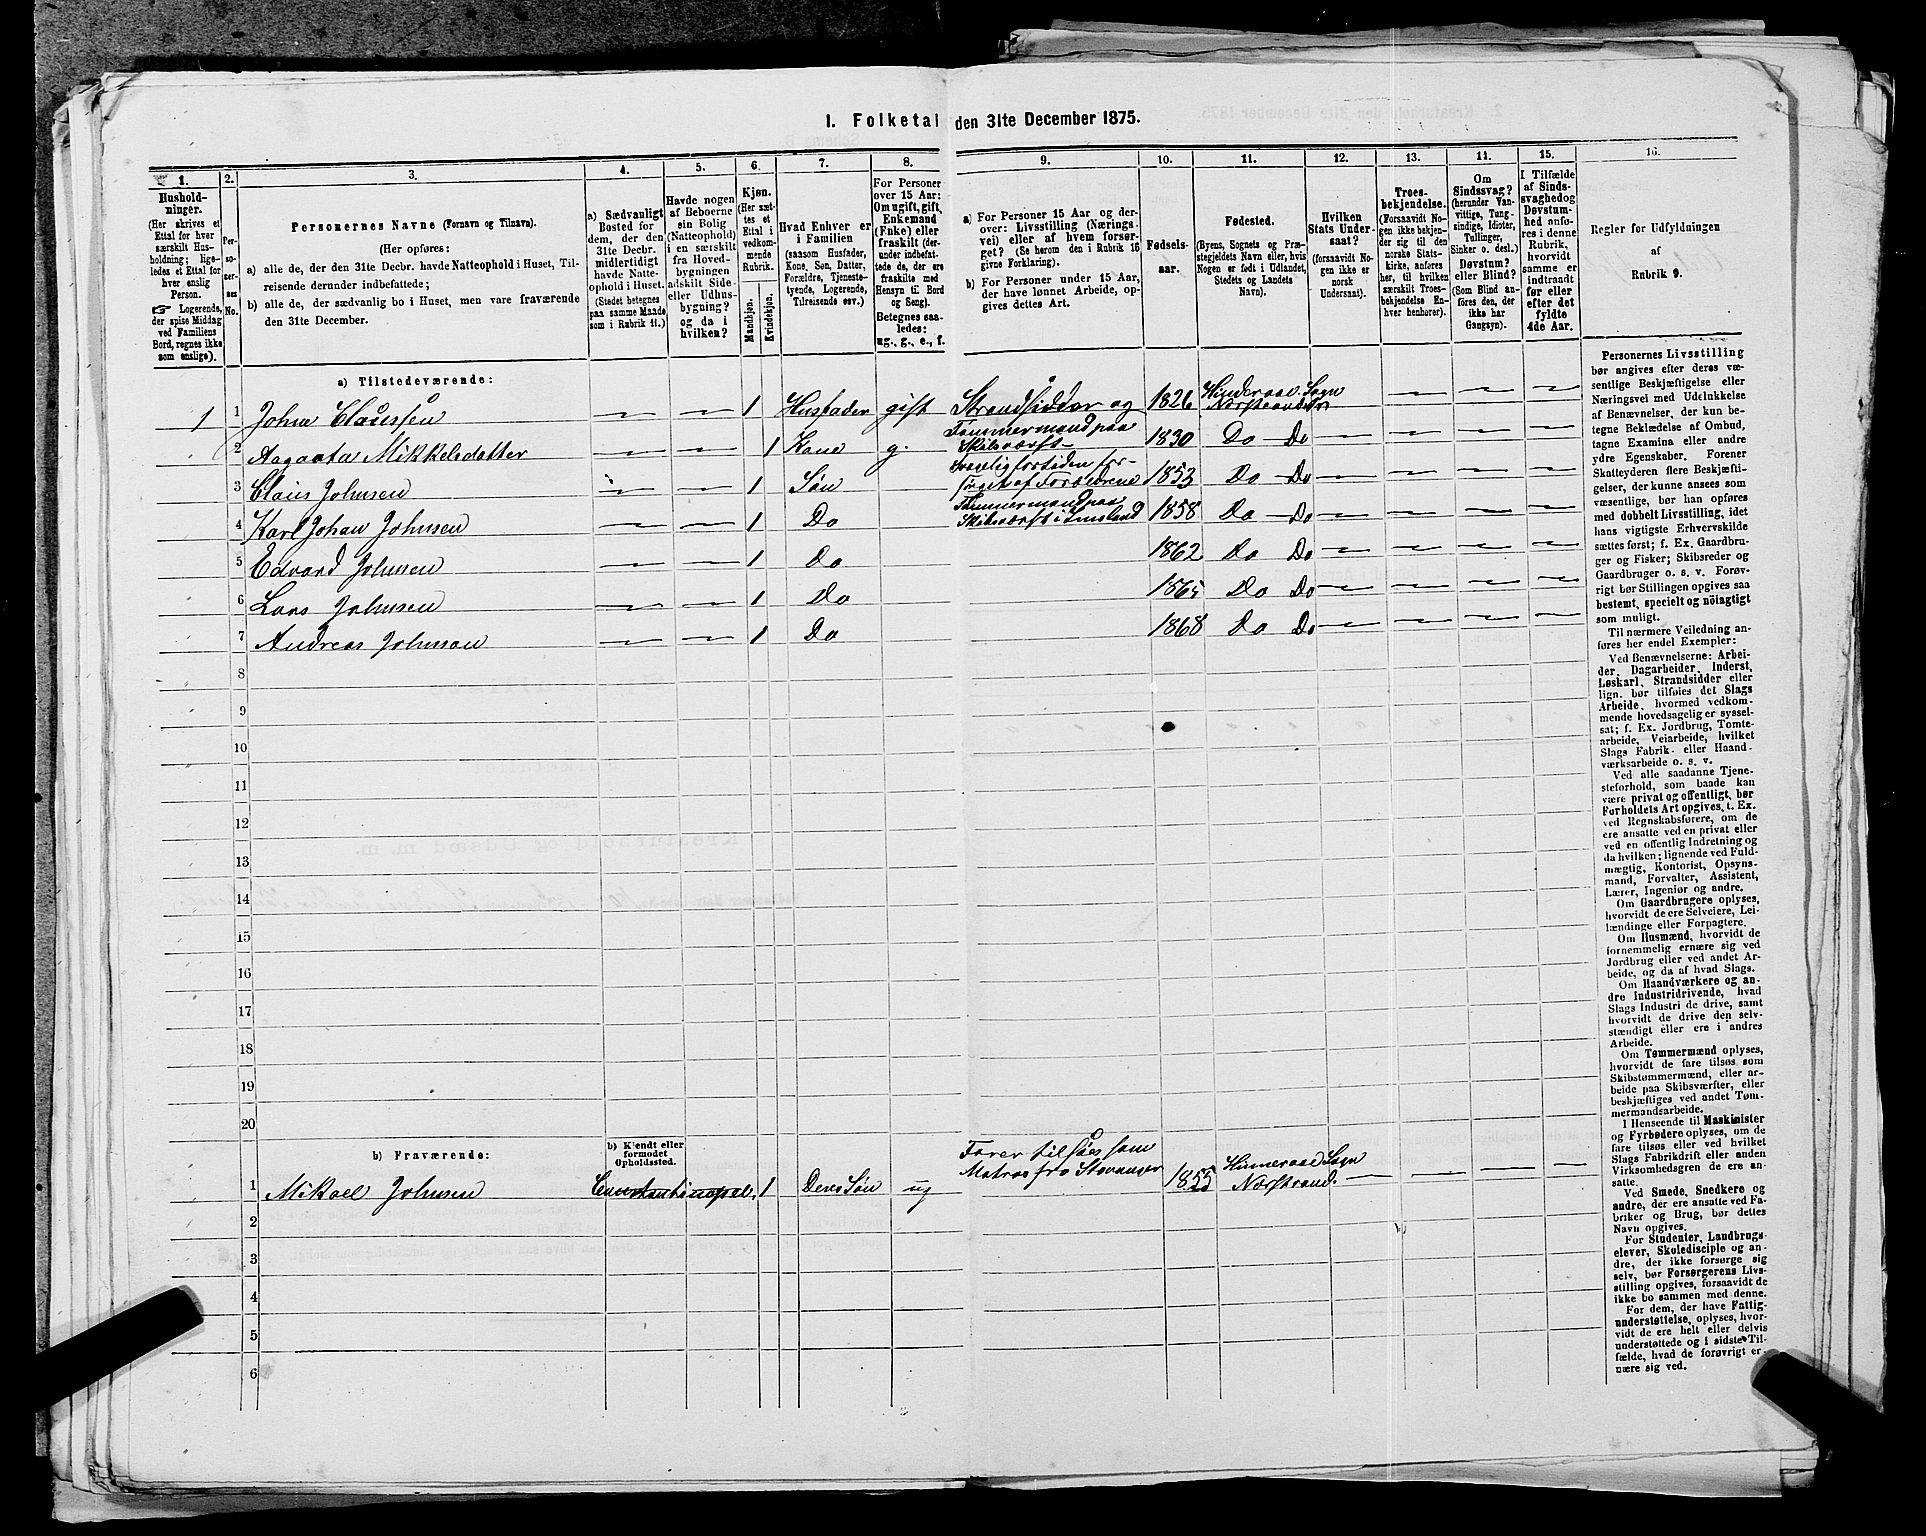 I. Folketal den 31te December 1875.
1. 2. 3. 4. 5. 6. 7. 8. 9. 10. 11. 12. 13. 14. 15. 16.
Hushold-
ninger.
(Her skrives et
Ettal for hver
særskilt Hus-
holdning; lige-
ledes et Ettal for
hver enslig
Person.
☞ Logerende,
der spise Middag
ved Familiens
Bord, regnes ikke
som enslige).
Per-
so-
ner-
nes
No.
Personernes Navne (Fornavn og Tilnavn).
(Her opføres:
a) alle de, der den 31te Decbr. havde Natteophold i Huset, Til-
reisende derunder indbefattede;
b) alle de, der sædvanlig bo i Huset, men vare fraværende
den 31te December.
a) Sædvanligt
Bosted for
dem, der den
31te Decbr.
midlertidigt
havde Natte-
ophold i Huset.
(Stedet betegnes
paa samme Maade
som i Rubrik 11.)
Havde nogen
af Beboerne
sin Bolig
(Natteophold)
i en særskilt
fra Hoved-
bygningen
adskilt Side-
eller Udhus-
bygning?
og da i
hvilken?
Kjøn.
(Her sæt-
tes et
Ettal i
vedkom-
mende
Rubrik.
Mandkjøn.
Kvindekjøn.
Hvad Enhver er
i Familien
(saasom Husfader,
Kone, Søn, Datter,
Forældre, Tjeneste-
tyende, Logerende,
Tilreisende osv.)
For Personer
over 15 Aar:
Om ugift, gift,
Enkemand
(Enke) eller
fraskilt (der-
under indbefat-
tede de, der ere
fraskilte med
Hensyn til Bord
og Seng).
Betegnes saa-
ledes:
ug., g., e., f.
a) For Personer 15 Aar og der-
over: Livsstilling (Nærings-
vei) eller af hvem forsør-
get? (Se herom den i Rubrik 16
givne Forklaring).
b) For Personer under 15 Aar,
der have lønnet Arbeide, op-
gives dettes Art.
Fødsels-
aar.
Fødested.
(Byens, Sognets og Præ-
stegjeldets Navn eller, hvis
Nogen er født i Udlandet,
Stedets og Landets
Navn).
Hvilken
Stats Under-
saat?
(forsaavidt No-
gen ikke er
norsk
Undersaat).
Troes-
bekjendelse.
(Forsaavidt No-
gen ikke bekjen-
der sig til den
norske Stats-
kirke, anføres
her, til hvilken
særskilt Troes-
bekjendelse En-
hver henhører).
Om
Sindssvag?
(herunder Van-
vittige, Tung-
sindige, Idioter,
Tullinger,
Sinker o. desl.)
Døvstum?
eller Blind?
(Som Blind an-
føres den, der
ikke har
Gangsyn).
I Tilfælde
af Sinds-
svaghed og
Døvstum-
hed anfø-
res i denne
Rubrik,
hvorvidt
samme er
indtraadt
før eller
efter det
fyldte
4de Aar.
Regler for Udfyldningen
af
Rubrik 9.
a) Tilstedeværende:
1 1 John Claussen — — 1 Husfader gift Strandsidder og Tømmermand paa Skibsværft 1826 Hinderaae Sogn Norstrand — — — —
2 Aagaata Mikkelsdatter — — 1 Kone g. 1830 Do Do — — — —
3 Claus Johnsen — — 1 Søn 1853 Do Do — — — —
4 Karl Johan Johnsen — — 1 Do Tømmermand paa Skibsværft i 1858 Do Do — — — —
5 Edvard Johnsen — — 1 Do 1862 Do Do — — — —
6 Lars Johnsen — — 1 Do 1865 Do Do — — — —
7 Andreas Johnsen — — 1 Do 1868 Do Do — — — —
8
9
10
11
12
13
14
15
16
17
18
19
20
b) Fraværende:
b) Kjendt eller
formodet
Opholdssted.
1 Mikael Johnsen Constantinopel. 1 Deres Søn ug Farer tilsøes som Matros fra Stavanger 1855 Hinneraae Sogn Norstrand. — — — —
2
3
4
5
6
Personernes Livsstilling
bør angives efter deres væ-
sentlige Beskjæftigelse eller
Næringsvei med Udelukkelse
af Benævnelser, der kun be-
tegne Beklædelse af Ombud,
tagne Examina eller andre
ydre Egenskaber. Forener
Skatteyderen flere Beskjæfti-
gelser, der kunne ansees som
væsentlige, bør han opføres
med dobbelt Livsstilling, idet
hans vigtigste Erhvervskilde
sættes først; f. Ex. Gaardbru-
ger og Fisker; Skibsreder og
Gaardbruger o. s. v. Forøv-
rigt bør Stillingen opgives saa
bestemt, specielt og nöiagtigt
som muligt.
Til nærmere Veiledning an-
føres her endel Exempler:
Ved Benævnelserne: Arbei-
der, Dagarbeider, Inderst,
Løskarl, Strandsidder eller
lign. bør tilføies det Slags
Arbeide, hvormed vedkom-
mende hovedsagelig er syssel-
sat; f. Ex. Jordbrug, Tomte-
arbeide, Veiarbeide, hvilket
Slags Fabrik- eller Haand-
værksarbeide o. s. v.
Ved alle saadanne Tjene-
steforhold, som baade kan
være privat og offentligt, bør
Forholdets Art opgives, t. Ex.
ved Regnskabsførere, om de
ere ansatte ved en privat eller
ved en offentlig Indretning og
da hvilken; lignende ved Fuld-
mægtig, Kontorist, Opsyns-
mand, Forvalter, Assistent,
Lærer, Ingeniør og andre.
Om Gaardbrugere oplyses,
hvorvidt de ere Selveiere, Lei-
lændinge eller Forpagtere.
Om Husmænd, hvorvidt de
fornemmelig ernære sig ved
Jordbrug eller ved andet Ar-
beide, og da af hvad Slags.
Om Haandværkere og an-
dre Industridrivende, hvad
Slags Industri de drive, samt
hvorvidt de drive den selv-
stændigt eller ere i andres
Arbeide.
Om Tømmermænd oplyses,
hvorvidt de fare tilsøs som
Skibstømmermænd, eller ar-
beide paa Skibsværfter, eller
beskjæftiges ved andet Tøm-
mermandsarbeide.
I Henseende til Maskinister
og Fyrbødere oplyses, om de
fare tilsøs eller ved hvilket
Slags Fabrikdrift eller anden
Virksomhedsgren de ere an-
satte.
Ved Smede, Snedkere og
andre, der ere ansatte ved Fa-
briker og Brug, bør dettes
Navn opgives.
For Studenter, Landbrugs-
elever, Skoledisciple og an-
dre, der ikke forsørge sig
selv, bør Forsørgerens Livs-
stilling opgives, forsaavidt de
ikke bo sammen med denne.
For dem, der have Fattig-
understøttelse, oplyses, hvor-
vidt de ere helt eller delvis
understøttede og i sidste Til-
fælde, hvad de forøvrigt er-
nære sig ved.